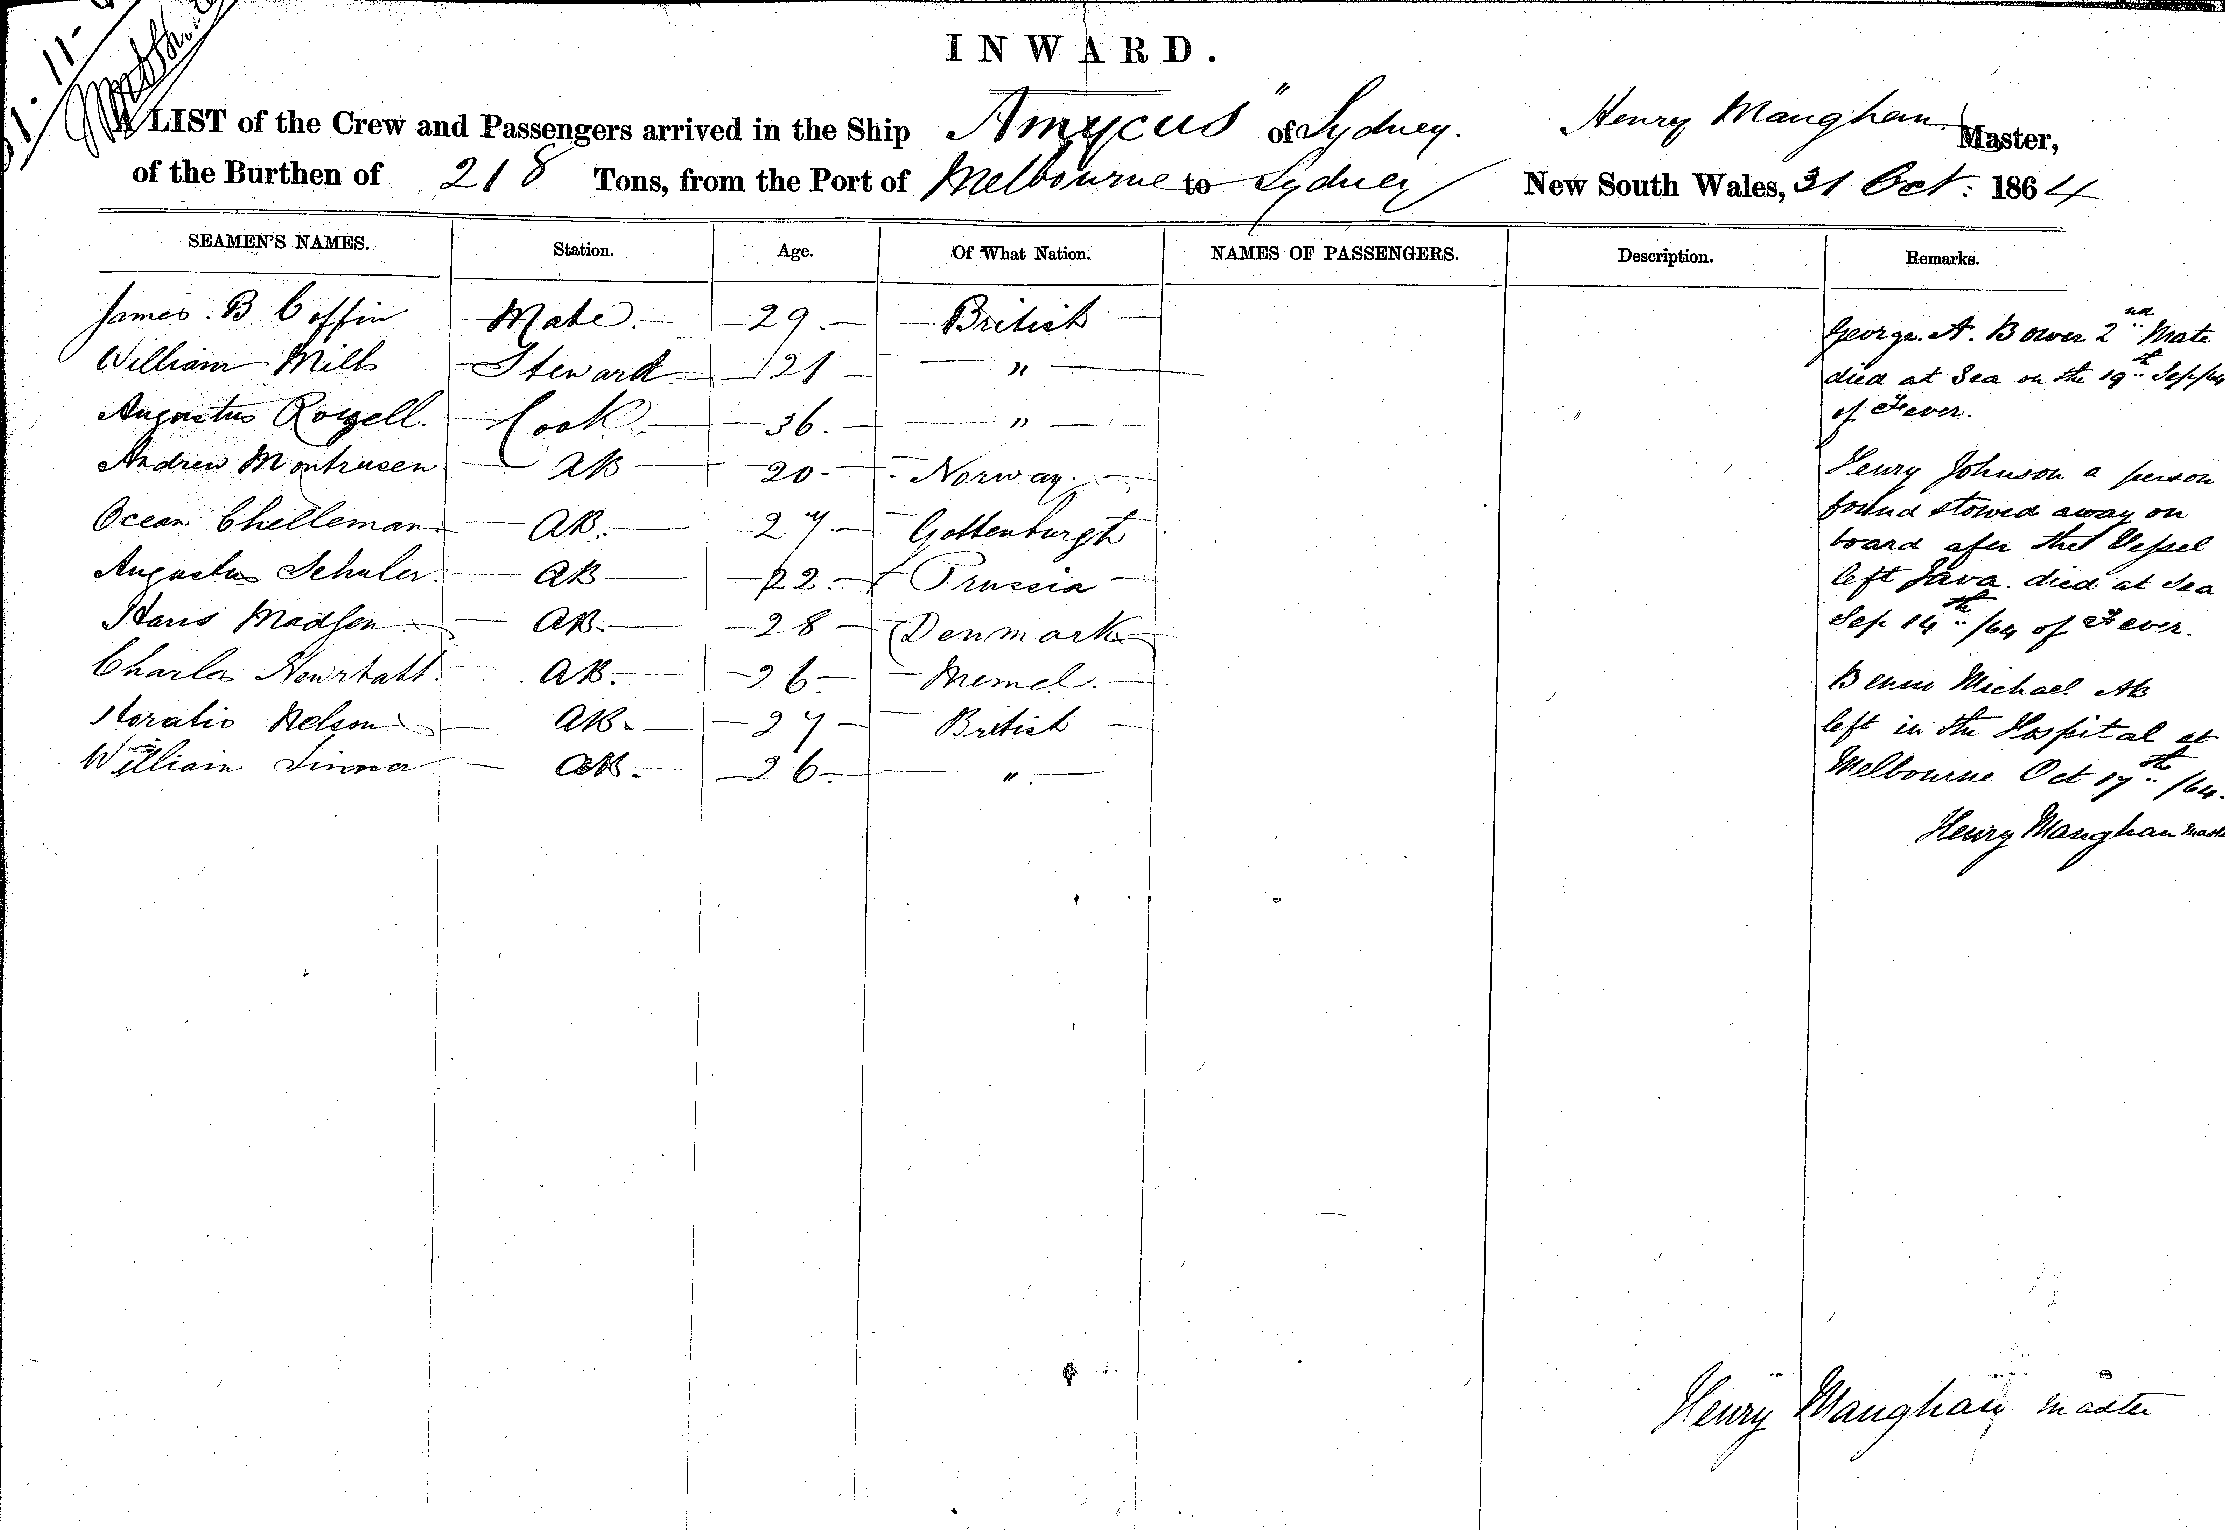 INWARD.
A LIST of the Crew and Passengers arrived in the Ship "Amycus" of Sydney. Henry Maughan Master,
of the Burthen of 218 Tons, from the Port of Melbourne to Sydney New South Wales, 31 Oct: 1864
SEAMEN'S NAMES. Station. Age. Of What Nation. NAMES OF PASSENGERS. Description. Remarks.
James B Coffin Mate. 29. British
William Mills Steward 21 "
Augustus Rozell. Cook 36. "
Andrew AB 20 Norway.
Ocean Chelleman AB. 27 Gottenburgh
Augustus Schuler. AB 22. Prussia
Hans Madsen AB. 28 Denmark
Charles AB. 26 Memel.
Horatio Nelson AB. 27 British
William AB. 26 "
George. A. Bower 2nd Mate
died at Sea on the 19th Sep/64
of Fever.
Henry Johnson a person
found stowed away on
board afer the Vessel
left Java. died at Sea
Sep 14th /64 of Fever.
Michael AB
left in the Hospital at
Melbourne Oct 17th /64.
Henry Maughan
Henry Maughan master